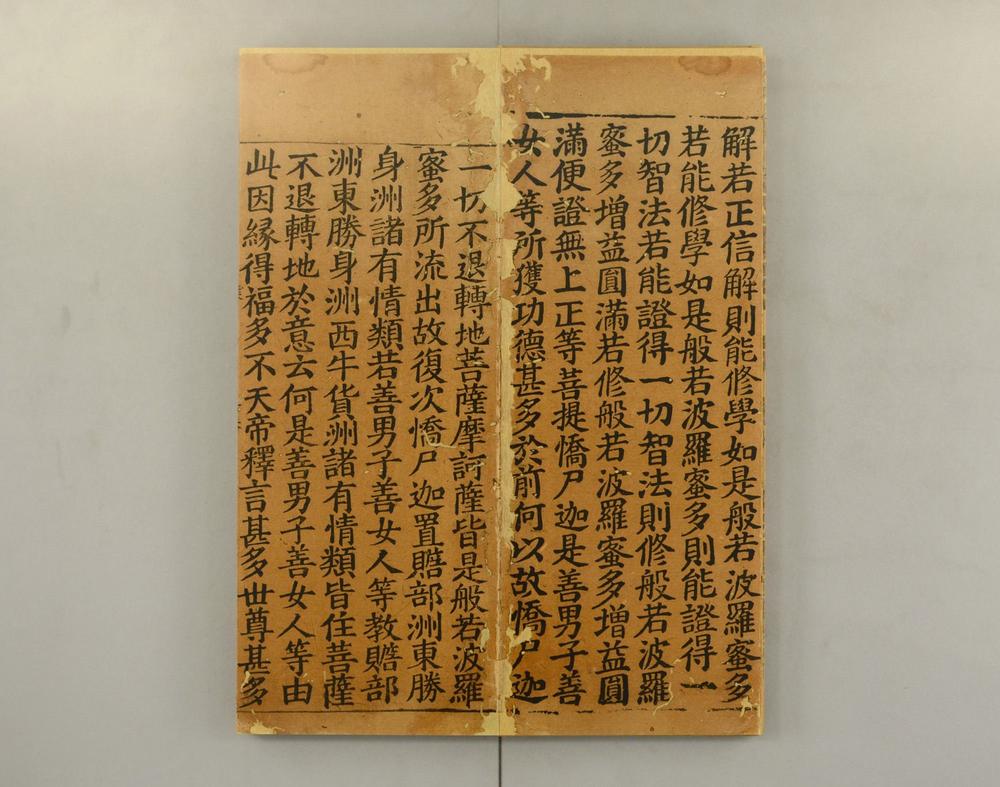 解若正信解則能修學如是般若波羅蜜多
若能修學如是般若波羅蜜多則能證得一
切智法若能證得一切智法則修般若波羅
蜜多增益圓滿若修般若波羅蜜多增益圓
滿便證無上正等菩提憍尸迦是善男子善
女人等所獲功德甚多於前何以故憍尸迦
一切不退轉地菩薩摩訶薩皆是般若波羅
蜜多所流出故復次憍尸迦置贍部洲東勝
身洲諸有情類若善男子善女人等教贍部
洲東勝身洲西牛貨洲諸有情類皆住菩薩
不退轉地於意云何是善男子善女人等由
此因緣得福多不天帝釋言甚多世尊甚多